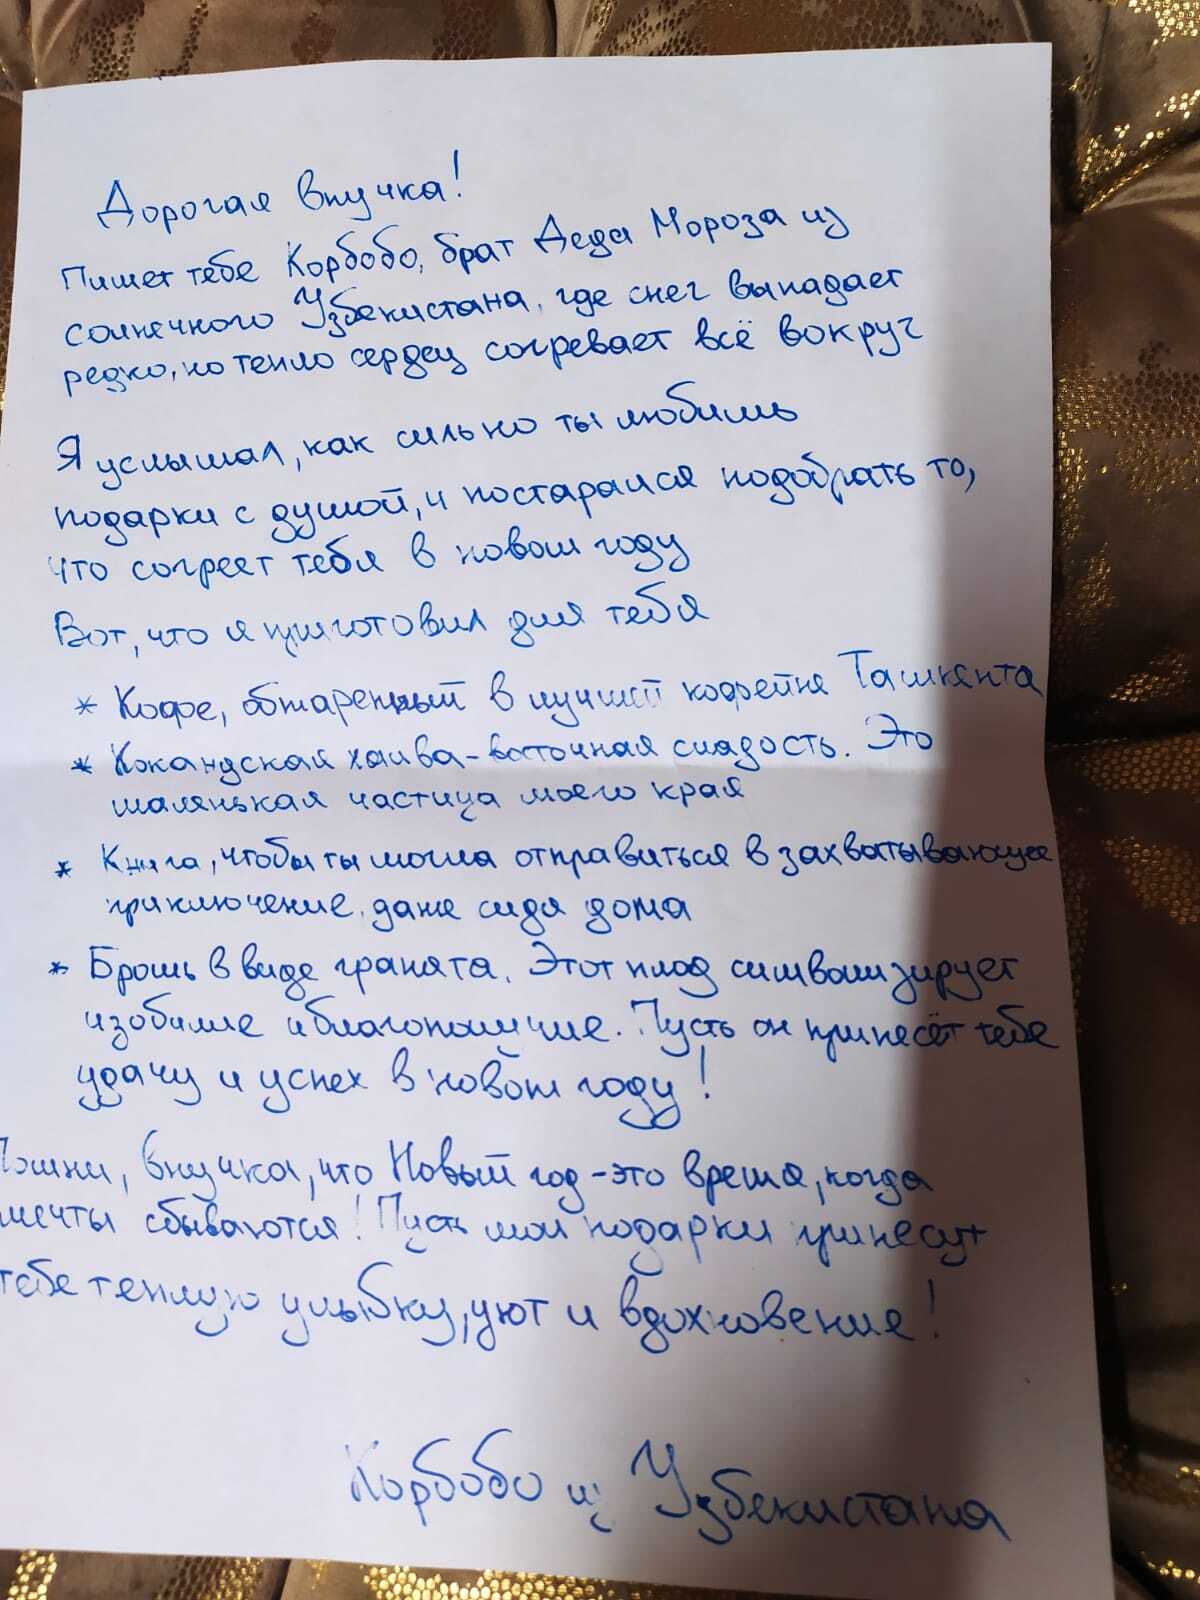 Дорогая внучка!
Пишет тебе Корбобо, брат Деда Мороза из
солнечного Узбекистана, где снег выпадает
редко, но тепло сердец согревает всё вокруг
Я услышал, как сильно ты любишь
подарки с душой, и постарался подобрать то,
что согреет тебя в новом году
Вот, что я приготовил для тебя
* Кофе, обжаренный в лучшей кофейне Ташкента
* Кокандская халва - восточная сладость. Это
маленькая частица моего края
* Книга, чтобы ты могла отправиться в захватывающее
приключение, даже сидя дома
* Брошь в виде граната. Этот плод символизирует
изобилие и благополучие. Пусть он принесёт тебе
удачу и успех в новом году!
Помни, внучка, что Новый год - это время, когда
мечты сбываются! Пусть мои подарки принесут
тебе теплую улыбку, уют и вдохновение!
Корбобо из Узбекистана